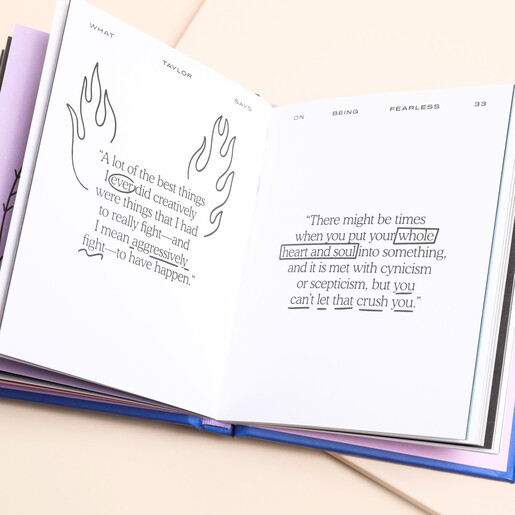 WHAT TAYLOR SAYS
"A lot of the best things
I ever did creatively
were things that I had
to really fight—and
I mean aggressively
fight—to have happen."
ON BEING FEARLESS 33
"There might be times
when you put your whole
heart and soul into something,
and it is met with cynicism
or scepticism, but you
can't let that crush you."